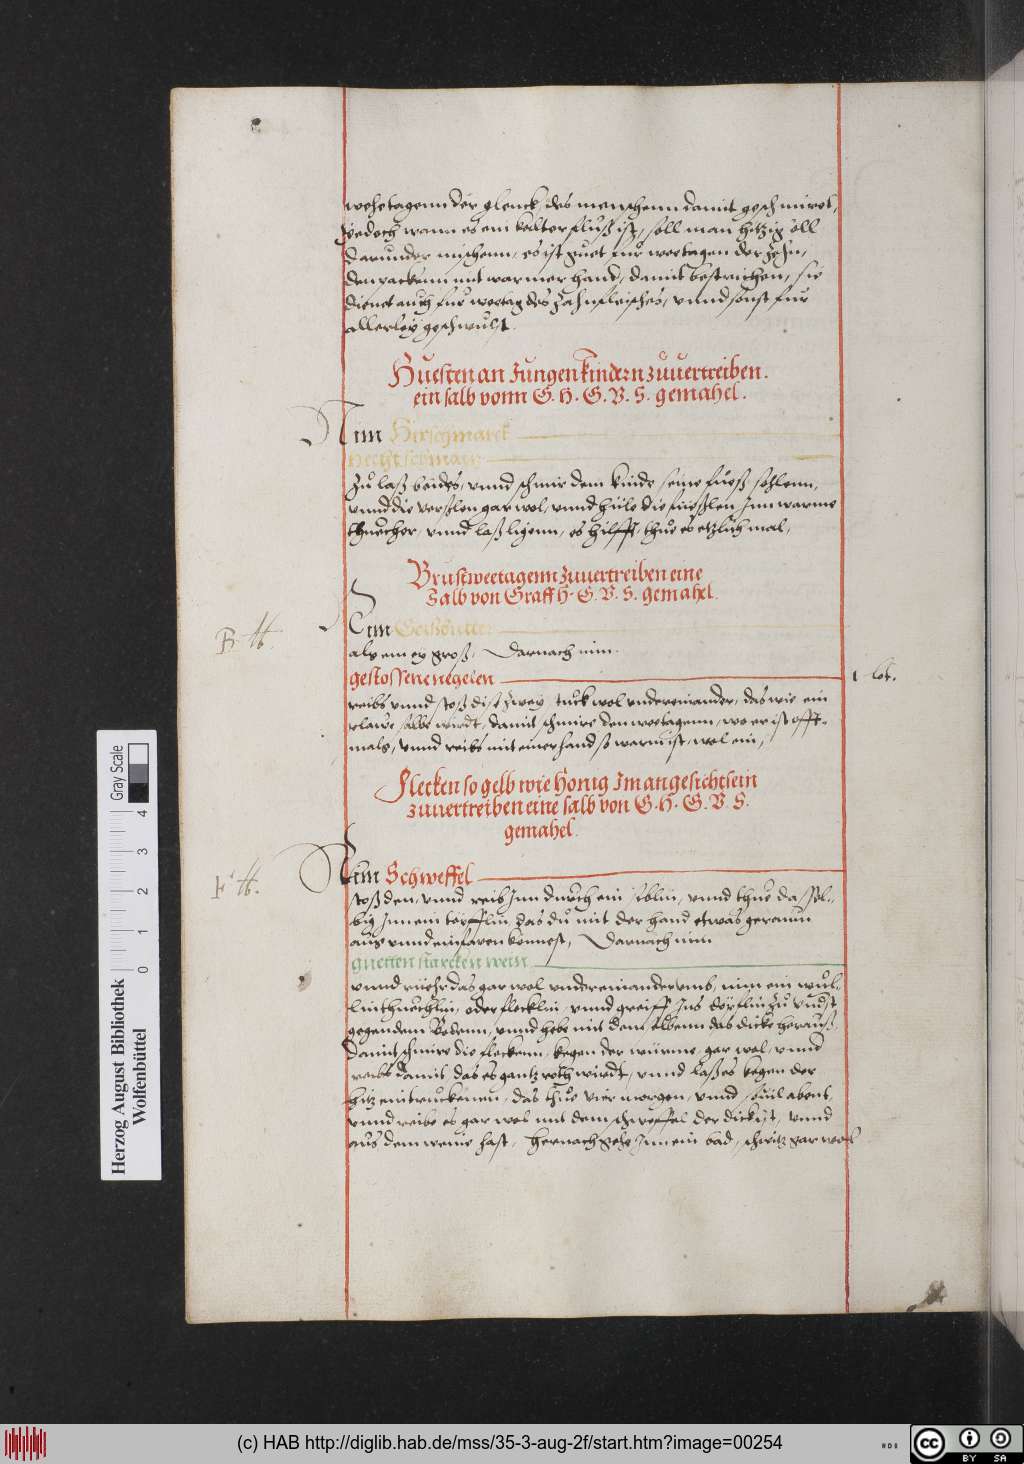 wehetagenn der glenck, des menschenn damit geschmiret,
Jedoch wann es ein kalter fluß ist, soll man hitzig oell
darunder mischenn, es ist guet für weetagen der Zehn,
den backenn mit warmer hand, damit bestrichen, sie
dienet auch fur weetag des Zahnfleisches, vnnd sonst fur
allerley geschwulst.
Huesten an Jungen kindern zuuertreiben.
ein salb vonn G. H. G. V. S. gemahel.
Nim Hirschmarck
Hechtschmaltz
Zu laß beides, vnnd schmir dem kinde seine fueß sohlenn,
vnnd die verßlen gar wol, vnnd hüle die füeßlen Jnn warme
thuecher, vnnd laß ligenn, es hilfft, thue es etzlich mal,
Brustweetagenn zuuertreiben eine
Salb von Graff H. G. V. S. gemahel.
B H.
Nim Geißbutter
als ein ey groß, Darnach nim
gestossene negelen 1 lot.
reibs vnnd stoß diße zwey stuck wol vndereinander, das wie ein
blawe salbe wirdt, damit schmire den weetagenn, wo er ist offt-
mals, vnnd reibs mit einer hand so warm ist, wol ein,
Flecken so gelb wie honig Jm angesicht sein
zuuertreiben eine salb von G. H. G. V. S.
gemahel.
F H.
Nim Schweffel
stoß den, vnnd reib Jnn durch ein siblin, vnnd thue dassel-
big Jnn ein töpfflin, das du mit der hand etwas geraum
aus vnnd ein faren könnest, Darnach nim
guetten starcken wein
vnnd rüehr das gar wol vndereinander vmb, nim ein wul-
lin thuechlin, oder flecklin, vnnd greiff Jns döpflin zu vndst
gegen dem Bodenn, vnnd hebe mit dem selbenn das dicke herauß,
damit schmire die fleckenn, kegen der würme, gar wol, vnnd
reibs damit das es gantz roth wirdt, vnnd laß es kegen der
hitz eintruckenen, das thue vier morgen, vnnd souil abent,
vnnd reibe es gar wol mit dem schweffel der dick ist, vnnd
aus dem weine hast, Hernach gehe Jnn ein bad, schwitz gar wol
Gray Scale
0 1 2 3 4
Herzog August Bibliothek
Wolfenbüttel
(c) HAB http://diglib.hab.de/mss/35-3-aug-2f/start.htm?image=00254
cc BY SA